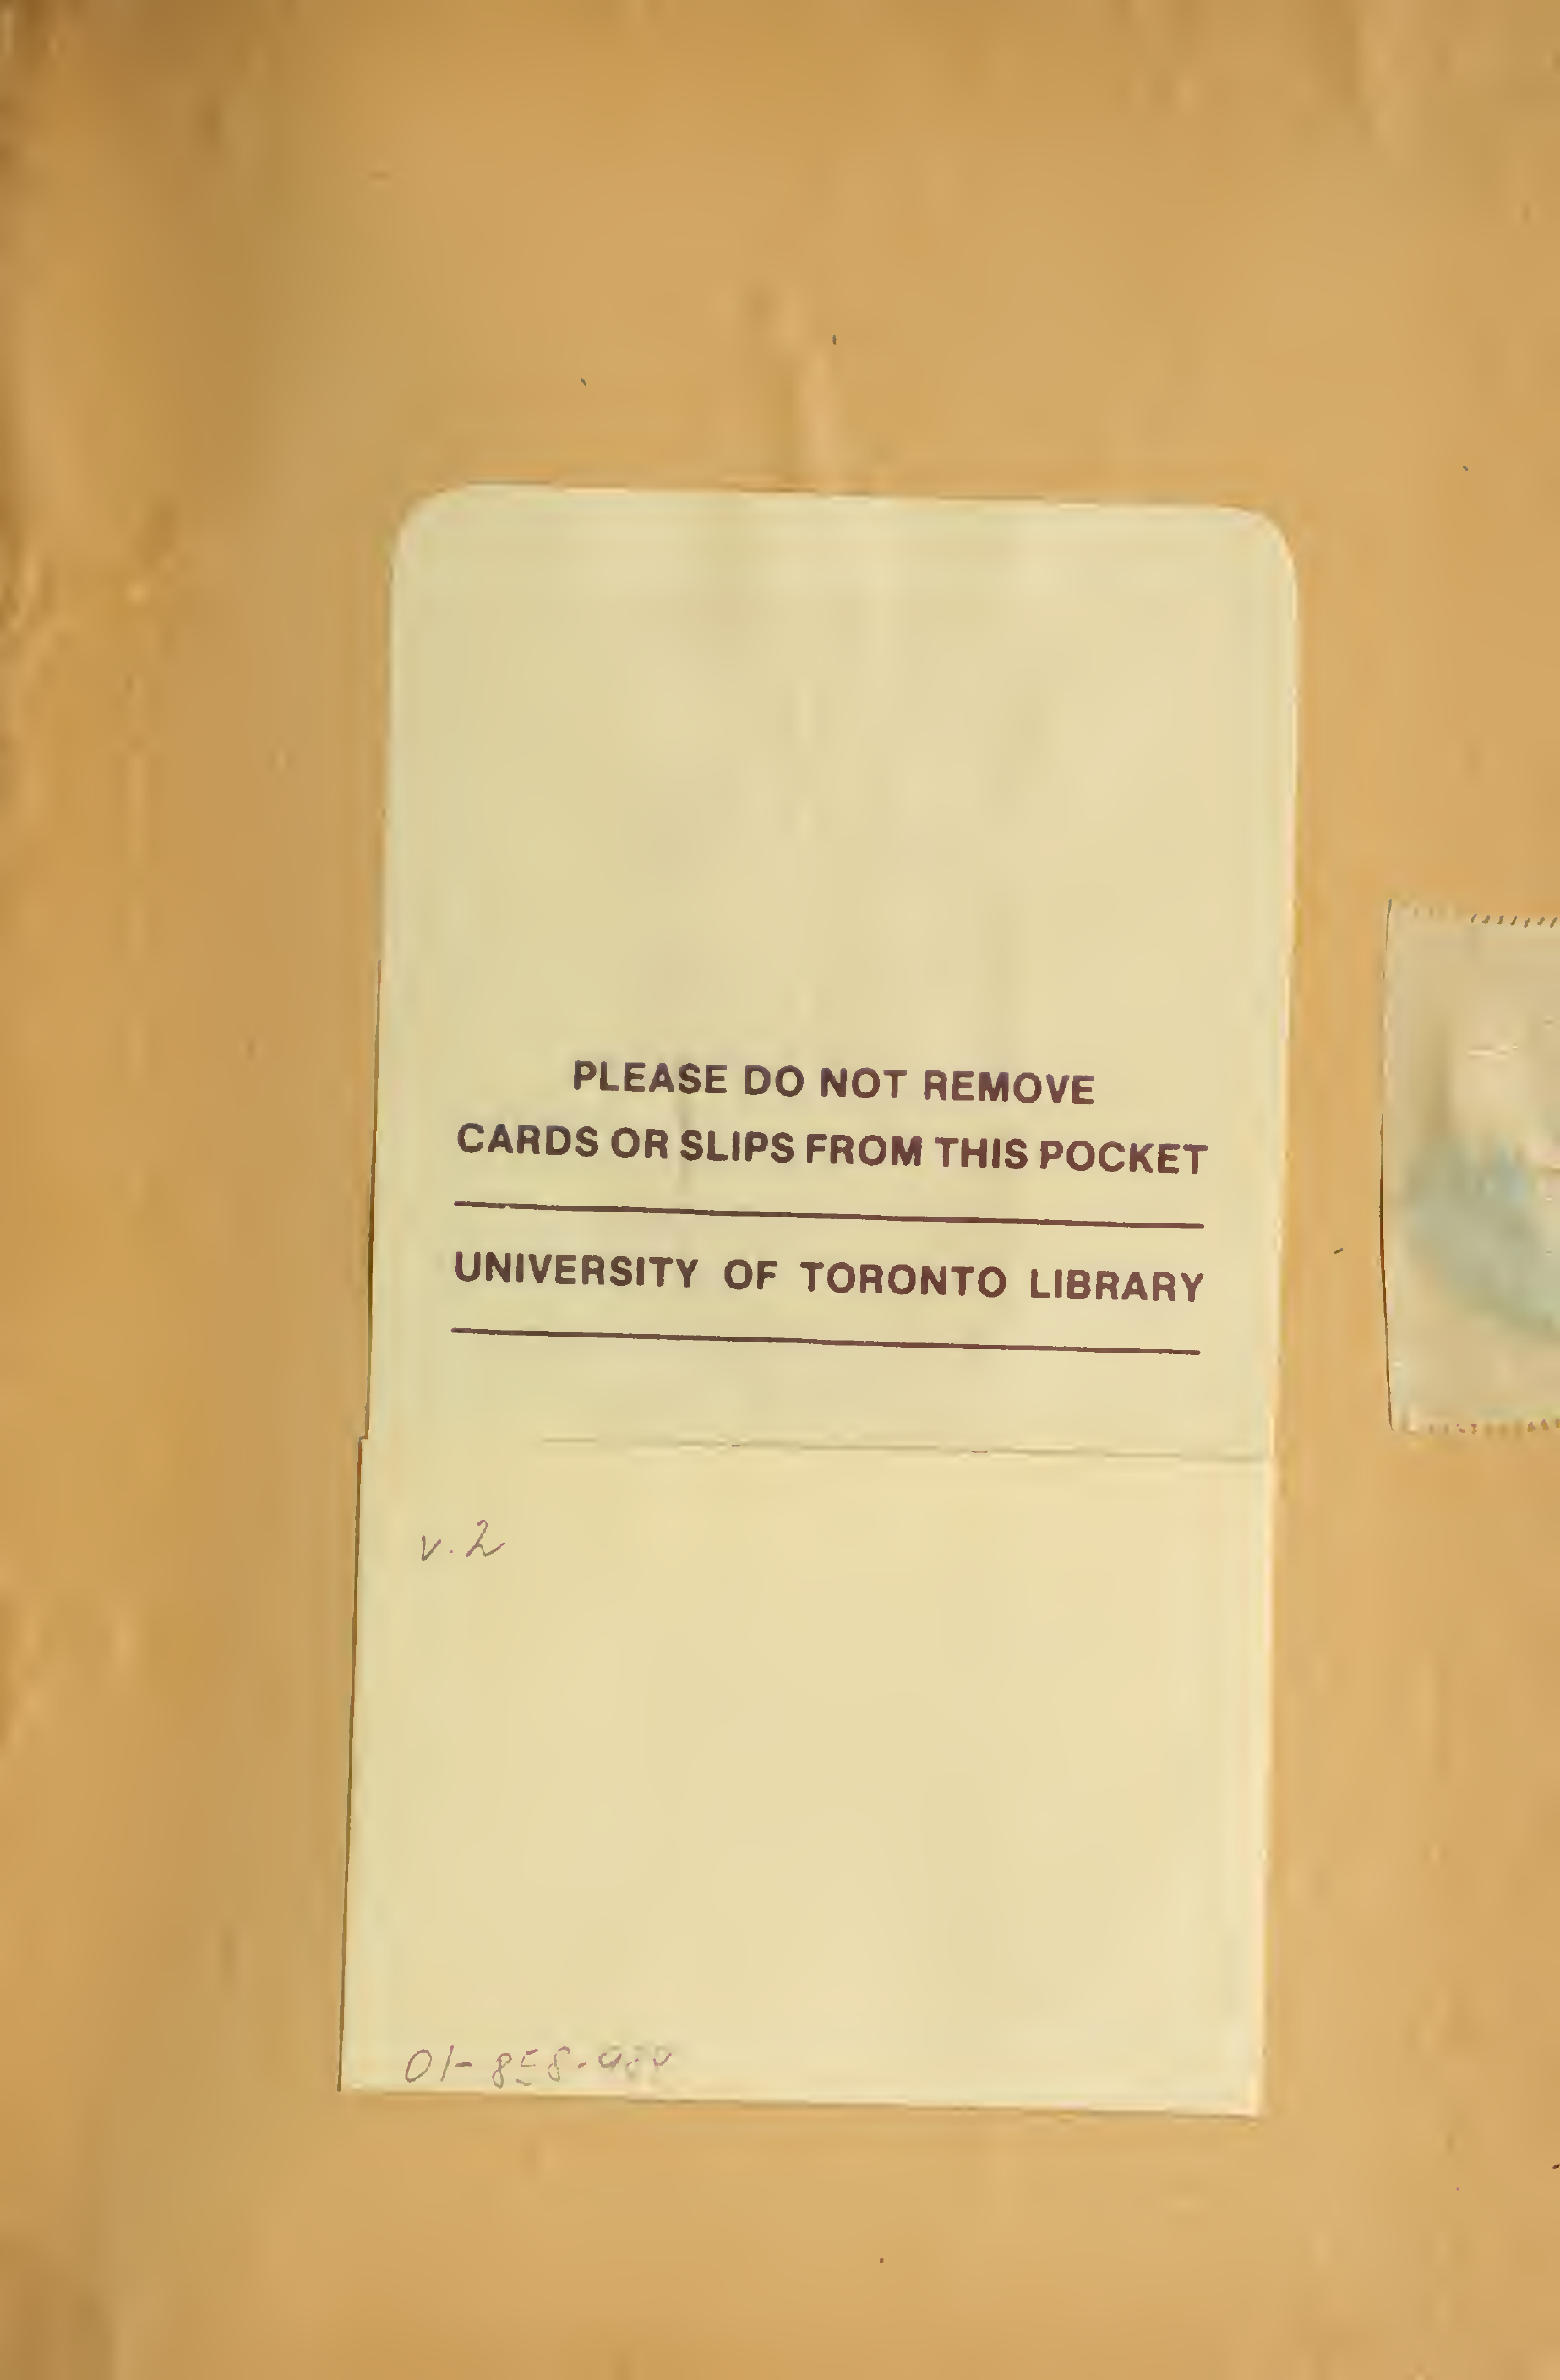 PLEASE DO NOT REMOVE
CARDS OR SLIPS FROM THIS POCKET
UNIVERSITY OF TORONTO LIBRARY
v.2